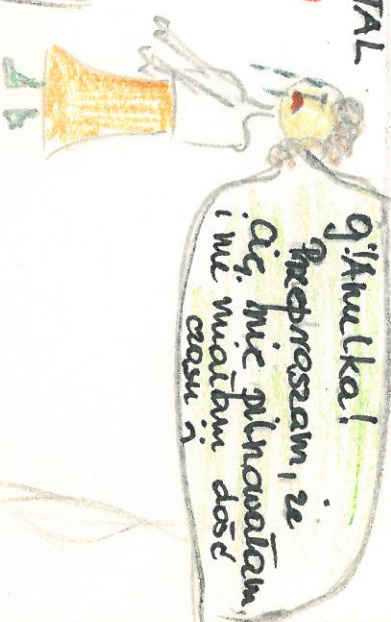 TAL
g! Anulka!
Przepraszam, że
Cię nie pilnowałam
i nie miałam dość
czasu